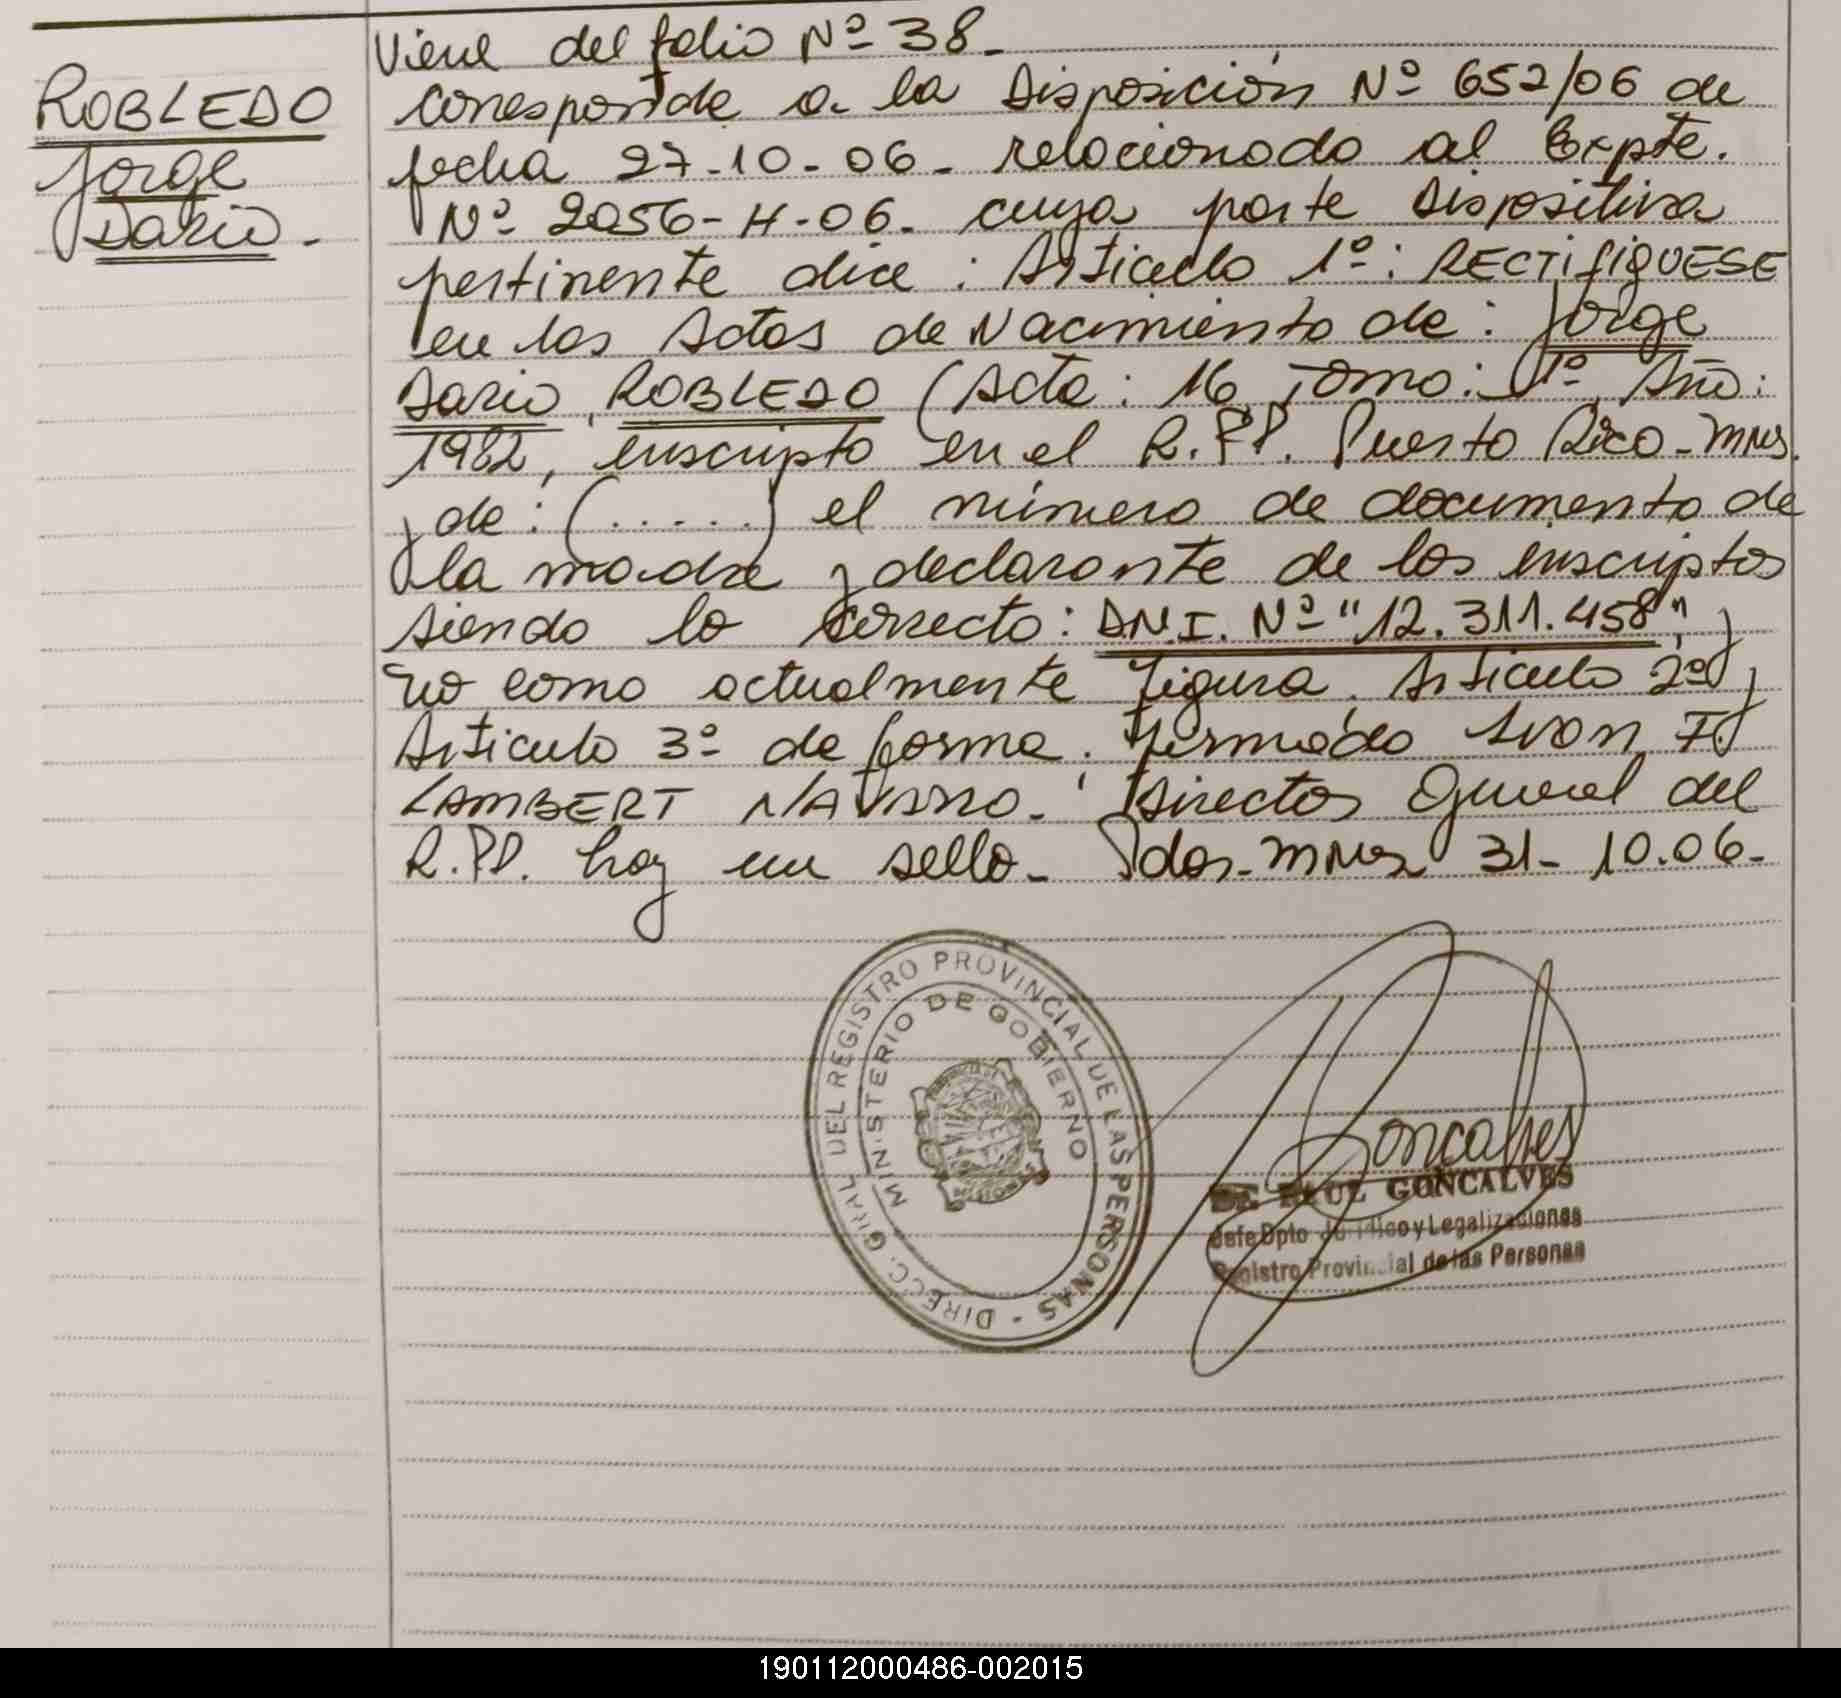 Viene del folio Nº 38.
ROBLEDO
Jorge
Dario.
Corresponde a la Disposición Nº 652/06 de
fecha 27-10-06. relacionado al Expte.
Nº 2056-H-06. cuya parte dispositiva
pertinente dice: Articulo 1º: RECTIFIQUESE
en las Actas de Nacimiento de: Jorge
Dario, ROBLEDO (Acta: 16, Tomo: 1º, Año:
1982, inscripto en el R.P.P. Puerto Rico-Mnes.
y de: (.....) el número de documento de
la madre y declarante de los inscriptos
siendo lo correcto: D.N.I. Nº "12.311.458", y
no como actualmente figura. Articulo 2º y
Articulo 3º de forma. Firmado Ivan F.
LAMBERT NAVARRO. Director General del
R.P.P. hay un sello. Pdas-Mnes 31-10.06.
DIRECC. GRAL DEL REGISTRO PROVINCIAL DE LAS PERSONAS -
MINISTERIO DE GOBIERNO
PROVINCIA DE MISIONES
Goncalves
Dr. RAUL GONCALVES
Jefe Dpto Jurídico y Legalizaciones
Registro Provincial de las Personas
190112000486-002015